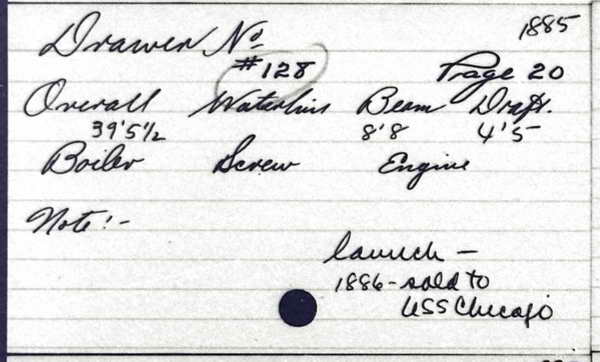 1885
Drawer No.
#128
Page 20
Overall Waterline Beam Draft.
39'5 1/2 8'8 4'5
Boiler Screw Engine
Note:-
launch -
1886 - sold to
USS Chicago